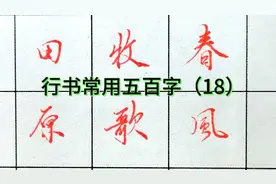 田 牧 春
行书常用五百字（18）
原 歌 風